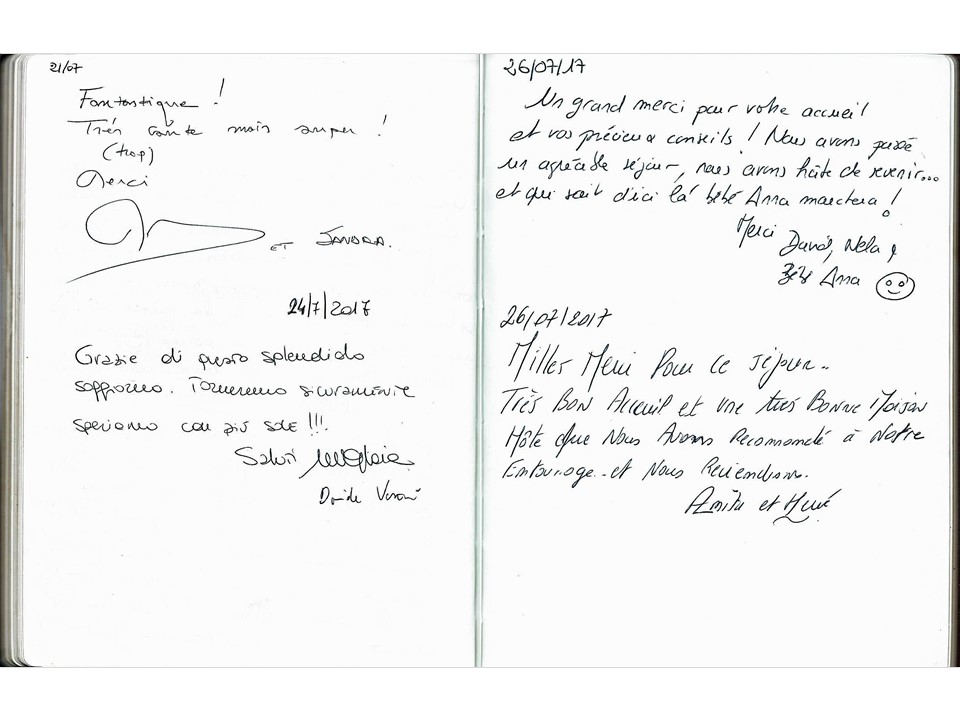 21/07
Fantastique !
Très courte mais super !
(trop)
Merci
ET SANDRA.
24/7/2017
Grazie di questo splendido
soggiorno. Torneremo sicuramente
speriamo con più sole !!!.
Saluti
Davide
26/07/17
Un grand merci pour votre accueil
et vos précieux conseils ! Nous avons passé
un agréable séjour, nous avons hâte de revenir...
et qui sait d'ici là bébé Anna marchera !
Merci David, Nela &
Bébé Anna
26/07/2017
Milles Merci Pour ce séjour..
Très Bon Acceuil et une très Bonne Maison
Hôte que Nous Avons Recommandé à Notre
Entourage.. et Nous Reviendrons.
et Hervé